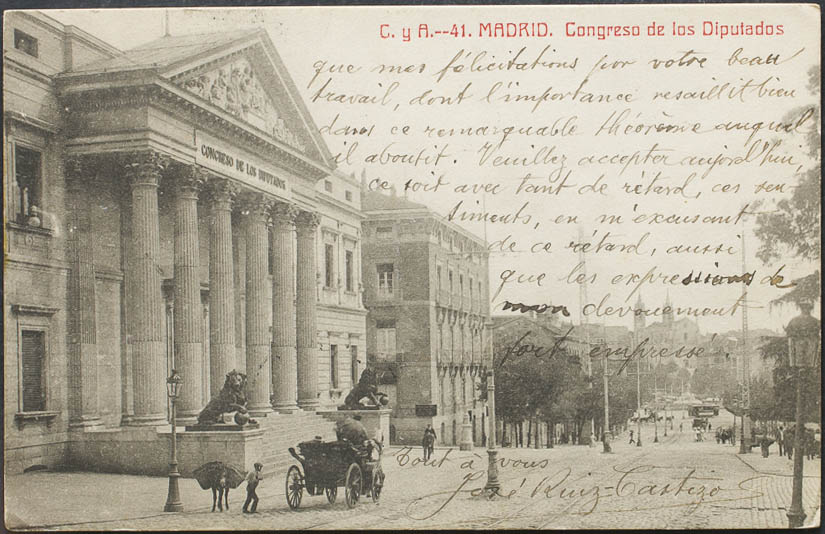 C. y A.--41. MADRID. Congreso de los Diputados
que mes félicitations por votre beau
travail, dont l'importance resaillit bien
dans ce remarquable théorème auquel
il aboutit. Veuillez accepter aujord'hui,
ce soit avec tant de rétard, ces sen-
timents, en m'excusant
de ce rétard, aussi
que les expressions de
mon devouement
fort empressé.
Tout à vous
José Ruiz-Castizo
CONGRESO DE LOS DIPUTADOS